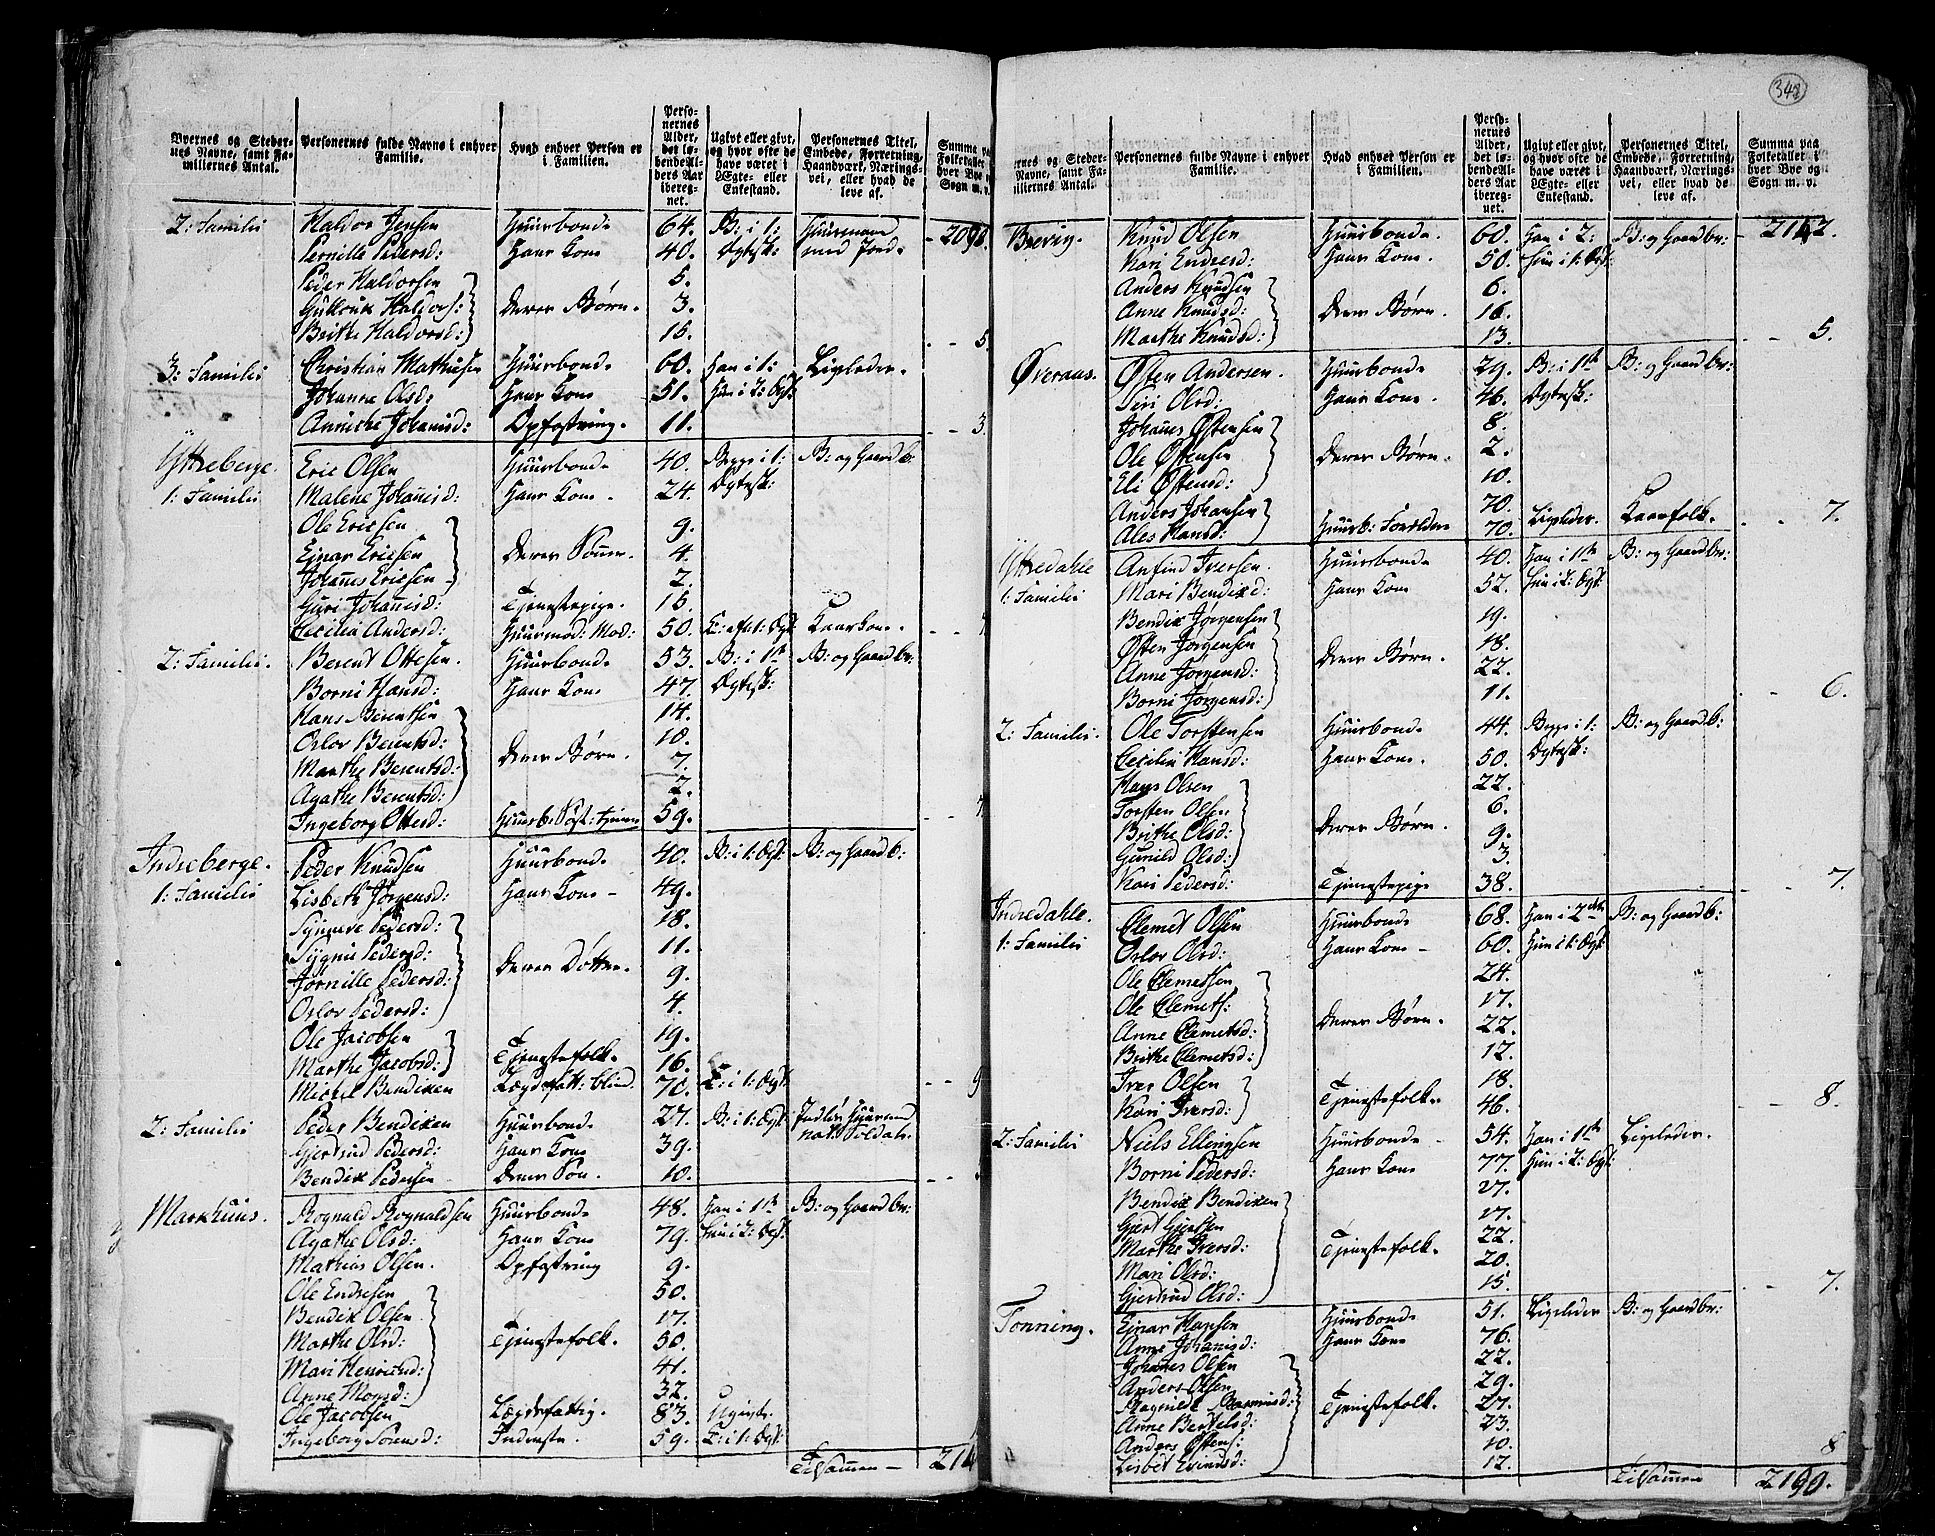 Byernes og Steder-
nes Navne, samt Fa-
miliernes Antal.
Personernes fulde Navne i enhver
Familie.
Hvad enhver Person er
i Familien.
Perso-
nernes
Alder,
det lø-
bende Al-
ders Aar
ibereg-
net.
Ugivt eller givt,
og hvor ofte de
have været i
Ægte- eller
Enkestand.
Personernes Titel,
Embede, Forretning,
Haandværk, Nærings-
vei, eller hvad de
leve af.
Summa paa
Folketallet
hver Bye
Sogn m. v.
2: Familie Haldor Jensen Huusbonde 64. B: i 1: Huusmand 209
Pernille Pedersd: Hans Kone 40. Ægtesk: med Jord
Peder Haldorsen 5.
Haldors: Deres Børn. 3.
Brithe Haldorsd: 15. 5.
3: Familie Christian Mathiesen Huusbonde 60. Han i 1: Ligeledes.
Johanne Olsd: Hans Kone 51. Hun i 2: Ægt:
Annithe Johannisd: Opfostring. 11. 3.
Yttreberge. Eric Olsen Huusbonde 40. Begge i 1: B: og Gaardb:
1: Familie Malene Johannisd: Hans Kone. 24. Ægtesk:
Ole Ericsen 9.
Ejnar Ericsen Deres Sönner. 4.
Johannes Ericsen 2.
Guri Johannisd: Tjenestepige. 15.
Cecilia Andersd: Huusmod: Mod: 50. E: eft: 1: Ægt: Kaarkone. 7
2: Familie. Berent Ottesen. Huusbonde 53. B: i 1ste B: og Gaardbr:
Borni Hansd: Hans Kone 47. Ægtesk:
Hans Berentsen 14.
Orlov Berentsd: 10.
Marthe Berentsd: Deres Børn. 7.
Agathe Berentsd: 2.
Ingeborg Ottesd: Huusb: Søst: tjener 59. 7
Indreberge. Peder Knudsen Huusbonde 40. B: i 1: Ægt: B: og Gaardb:
1: Familie Lisbeth Jørgensd: Hans Kone 49.
Synneve Pedersd: 18.
Sygni Pedersd: 11.
Jørnille Pedersd: Deres Døttre. 9.
Orlov Pedersd: 4.
Ole Jacobsen 19.
Marthe Jacobsd: Tjenestefolk. 16.
Michel Bendixen Lægdsfatt: blind. 70. E: i 1: Ægt: 9
2: Familie Peder Bendixen Huusbonde 27. B: i 1: Ægt: Huusmand
Gjertrud Pedersd: Hans Kone 39. nat: Soldat.
Bendix Pedersen Deres Søn. 10.
Markhuus. Rognald Rognaldsen Huusbonde 48. Han i 1ste B: og Gaardbr:
Agathe Olsd: Hans Kone 79. Hun i 2: Ægt:
Mathias Olsen. Opfostring 9.
Ole Endresen 50.
Bendix Olsen 17.
Marthe Olsd: Tjenestefolk. 50.
Mari Henricsd: 41.
Anne Monsd: 32.
Ole Jacobsen Lægdsfattig. 83. Ugivt.
Ingeborg Sörensd: Inderste. 59. E: i 1: Ægt:
Tilsammen 214
342
ernes og Steder-
Navne, samt Fa-
iliernes Antal.
Personernes fulde Navne i enhver
Familie.
Hvad enhver Person er
i Familien.
Perso-
nernes
Alder,
det lø-
bende Al-
ders Aar
ibereg-
net.
Ugivt eller givt,
og hvor ofte de
have været i
Ægte- eller
Enkestand.
Personernes Titel,
Embede, Forretning,
Haandværk, Nærings-
vei, eller hvad de
leve af.
Summa paa
Folketallet i
hver Bye og
Sogn m. v.
Brevig. Knud Olsen Huusbonde. 60. Han i 2: B: og Gaardbr: 2142.
Kari Endresd: Hans Kone. 50. Hun i 1: Ægt:
Anders Knudsen 6.
Anne Knudsd: Deres Børn. 16.
Marthe Knudsd: 13. 5.
Øveraas. Østen Andersen. Huusbonde 29. B: i 1ste B: og Gaardbr:
Siri Olsd: Hans Kone. 46. Ægtesk:
Johannes Østensen 8.
Ole Østensen Deres Børn. 2.
Eli Østensd: 10.
Anders Johansen 70.
Ales Hansd: Huusb: Forældre 70. Ligeledes. Kaarfolk. 7.
Yttredahle Anfind Iversen. Huusbonde 40. Han i 1ste B: og Gaardbr:
1: Familie Mari Bendixd: Hans Kone 52. Hun i 2: Ægt:
Bendix Jørgensen 19.
Østen Jørgensen 18.
Anne Jørgensd: Deres Børn. 22.
Borni Jørgensd: 11. 6.
2: Familie. Ole Torstensen Huusbonde 44. Begge i 1: B: og Gaardb:
Cecilia Hansd: Hans Kone. 50. Ægtesk:
Hans Olsen 22.
Torsten Olsen 6.
Brithe Olsd: Deres Børn. 9.
Gunild Olsd: 3.
Kari Pedersd: Tjenestepige 38. 7.
Indredahle. Clemet Olsen Huusbonde 68. Han i 2den B: og Gaardb:
1: Familie Orlov Olsd: Hans Kone 60. Hun i 1: Ægt:
Ole Clemetsen 24.
Ole Clemets: 17.
Anne Clemetsd: Deres Børn. 22.
Brithe Clemetsd: 12.
Iver Olsen 18.
Kari Iversd: Tjenestefolk. 46. 8.
2: Familie Niels Ellingsen Huusbonde 54. Han i 1ste Ligeledes.
Borni Pedersd: Hans Kone 77. Hun i 2: Ægt:
Bendix Bendixen 27.
Gjert Gjertsen 17.
Marthe Iversd: Tjenestefolk. 22.
Mari Olsd: 20.
Gjertrud Olsd: 15. 7.
Tonning. Ejnar Hansen Huusbonde 51. Ligeledes B: og Gaardbr:
Anne Johannisd: Hans Kone 76.
Johannes Olsen 22.
Anders Olsen 29.
Ragnild Rasmusd: Tjenestefolk. 27.
Anne Bertelsd: 23.
Anders Østens: 10.
Lisbet Evindsd: 12. 8
Tilsammen 2190.